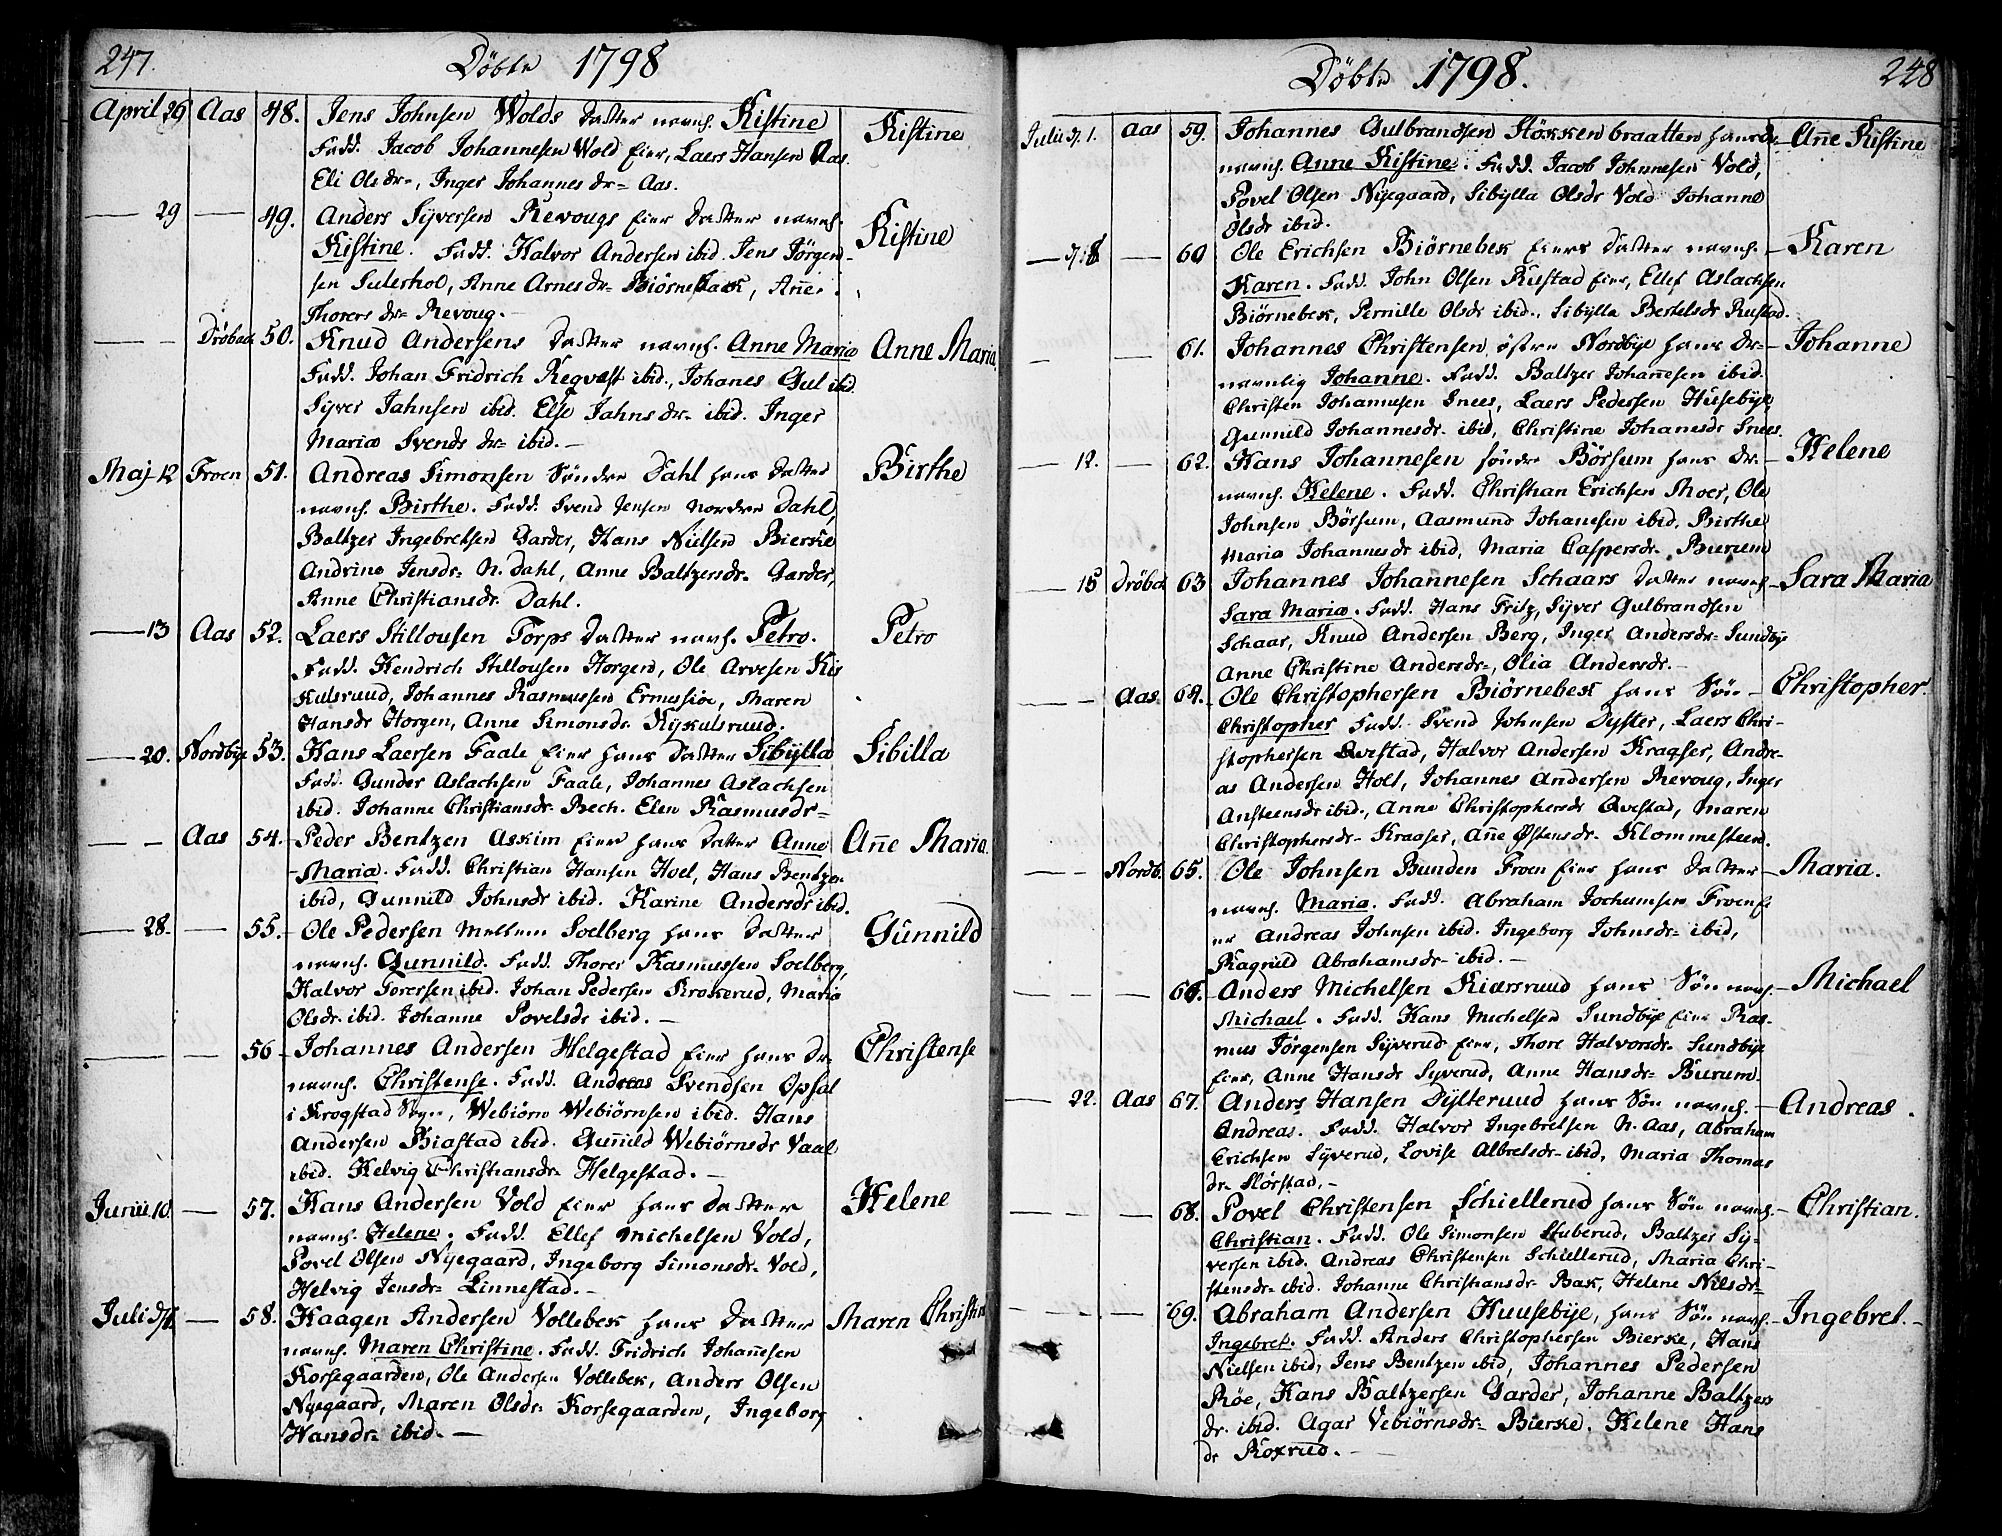 247.
Döbte 1798
April 29 Aas 48. Jens Johnsen Wolds datter navnl. Kistine Kistine
Fadd. Jacob Johannesen Wold Eier, Laers Hansen Aas.
Eli Ols dr-, Inger Johannes dr- Aas.
— 29 — 49. Anders Syversen Revougs Eier datter navnl. Kistine
Kistine. Fadd. Halvor Andersen ibid. Jens Jörgen-
sen Sulerhol, Anne Arnes dr- Biörnebæk, Añe
Thorers dr- Revoug. —
— — Dröbak 50. Knud Andersens datter navnl. Anne Maria Anne Maria.
Fadd. Johan Fridrich Reqvast ibid., Johanes Gul ibid.
Syver Jahnsen ibid. Else Jahns dr- ibid. Inger
Maria Svends dr- ibid. —
Maj 12 Froen 51. Andreas Simonsen Söndre Dahl hans datter Birthe
navnl. Birthe. Fadd. Svend Jensen Nordre Dahl,
Baltzer Ingebretsen Garder, Hans Nielsen Bierke
Andrine Jensdr- N. Dahl, Anne Baltzersdr- Garder,
Anne Christiansdr. Dahl.
— 13 Aas 52. Laers Stillousen Torps datter navnl. Petro. Petro
Fadd. Hendrich Stillousen Horgen, Ole Arvesen Kis
Kulsruud, Johannes Rasmussen Ermesiöe, Maren
Hansdr Horgen, Anne Simonsdr. Kykulsruud.
— 20. Nordbye 53. Hans Laersen Faale Eier hans datter Sibylla Sibilla
Fadd. Gunder Aslachsen Faale, Johannes Aslachsen
ibid. Johanne Christiansdr. Bech. Elen Rasmusdr-
— — Aas 54. Peder Bentzen Askim Eier hans datter Anne Añe Maria.
Maria. Fadd. Christian Hansen Hoel, Hans Bentzen
ibid, Gunnild Johnsdr ibid. Karine Andersdr ibid.
— 28. — 55. Ole Pedersen Mellem Soelberg hans datter Gunnild
navnl. Gunnild. Fadd. Thorer Rasmussen Soelberg,
Halvor Torersen ibid. Johan Pedersen Krokerud, Maria
Olsdr. ibid. Johanne Povelsdr ibid. —
— — 56 Johannes Andersen Helgestad Eier hans dr. Christense
navnl. Christense. Fadd. Andreas Svendsen Opsal
i Krogstad Sogn, Webiörn Webiörnsen ibid. Hans
Andersen Biastad ibid. Guñild Webiörnsdr Vaal
ibid. Helvig Christiansdr- Helgestad. —
Junii 10. — 57. Hans Andersen Vold Eier hans datter Helene
navnl. Helene. Fadd. Ellef Michelsen Vold,
Povel Olsen Nyegaard, Ingeborg Simonsdr- Vold,
Helvig Jensdr- Linnestad. —
Juli d/1. — 58. Haagen Andersen Vollebek hans datter Maren Christine
navnl. Maren Christine. Fadd. Fridrich Johañesen
Korsegaarden, Ole Andersen Vollebek, Anders Olsen
Nyegaard, Maren Olsdr. Korsegaarden, Ingeborg
Hansdr- ibid. —
Döbte 1798.
248
Julii d/ 1. Aas 59. Johannes Gulbrandsen Stökkenbraatten hans dr. Añe Kistine
navnl. Anne Kistine. Fadd. Jacob Johannesen Vold,
Povel Olsen Nyegaard, Sibylla Olsdr Vold Johanne
Olsdr ibid.
— d/ 8 — 60 Ole Erichsen Biörnebek Eiers datter navnl. Karen
Karen. Fadd. John Olsen Rustad Eier, Ellef Aslachsen
Biörnebek, Pernille Olsdr ibid., Sibylla Bertelsdr Rustad.
— — 61. Johannes Christensen östre Nordbye hans dr- Johanne
navnlig Johanne. Fadd. Baltzer Johañesen ibid.
Christen Johannesen Snees, Laers Pedersen Husebye,
Gunnild Johannesdr. ibid, Christine Johanesdr Snees.
— 12. — 62. Hans Johannesen söndre Börsum hans dr. Helene
navnl. Helene. Fadd. Christian Erichsen Moer, Ole
Johnsen Börsum, Aasmund Johanesen ibid, Birthe
Maria Johannesdr ibid, Maria Caspersdr. Burum
— 15 Dröbak 63 Johannes Johannesen Schaars datter navnl. Sara Maria
Sara Maria. Fadd. Hans Fritz, Syver Gulbrandsen
Schaar, Knud Andersen Berg, Inger Andersdr- Sundbye
Anne Christine Andersdr-, Olia Andersdr. —
— — Aas. 64. Ole Christophersen Biörnebek hans Sön Christopher.
Christopher Fadd. Svend Johnsen Dyster, Laers Chri-
stophersen Qvestad, Halvor Andersen Kragser, Andre-
as Andersen Holt, Johannes Andersen Revoug, Inger
Ansteensdr ibid., Anne Christophersdr Qvestad, Maren
Christophersdr- Kraaser, Añe Östensdr- Klommesteen.
— — Nordb. 65. Ole Johnsen Bunden Froen Eier hans datter Maria.
navnl. Maria. Fadd. Abraham Jochumsen Froen Ei
er Andreas Johnsen ibid. Ingeborg Johnsdr- ibid,
Ragnild Abrahamsdr- ibid. —
— — 66. Anders Michelsen Kiærsruud hans Sön navnl. Michael
Michael. Fadd. Hans Michelsen Sundbye Eier Ras-
mus Jörgensen Syverud Eier, Thore Halvorsdr- Sundbye
Eier, Anne Hansdr Syverud, Anne Hansdr- Burum.
— 22. Aas 67. Anders Hansen Dysteruud hans Sön navnl. Andreas.
Andreas. Fadd. Halvor Ingebretsen N. Aas, Abraham
Erichsen Syverud, Lovise Albretsdr- ibid, Maria Thomas
dr- Störstad. —
— — 68. Povel Christensen Schiellerud hans Sön navnl. Christian.
Christian. Fadd. Ole Simonsen Stuberud, Baltzer Sy-
versen ibid. Andreas Christensen Schiellerud, Maria Chri-
stensdr- ibid. Johanne Christiansdr- Bak, Helene Nilsdr-
— — 69. Abraham Andersen Huusebye, hans Sön navnl. Ingebret.
Ingebret. Fadd. Anders Christophersen Bierke, Hans
Nielsen ibid, Jens Bentzen ibid, Johannes Pedersen
Röe, Hans Baltzersen Garder, Johanne Baltzers
dr. ibid. Agar Vebiörnsdr- Bierke. Helene Hans
dr Roxrud. —